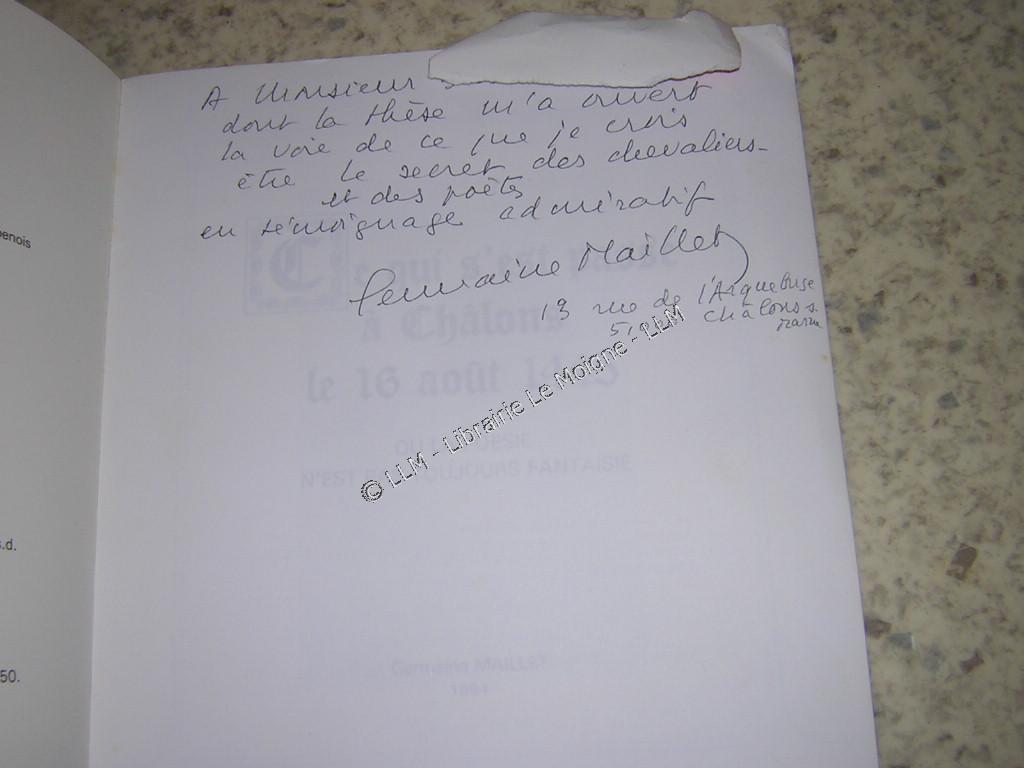 A Monsieur
dont la thèse m'a ouvert
la voie de ce que je crois
être le secret des chevaliers
et des poètes
en témoignage admiratif
Germaine Maillet
13 rue de l'Arquebuse
Châlons s.
Ce qui s'est passé
à Châlons
le 16 août
N'EST PAS TOUJOURS FANTAISIE
Germaine MAILLET
© LLM - Librairie Le Moigne - LLM
enois
s.d.
50.